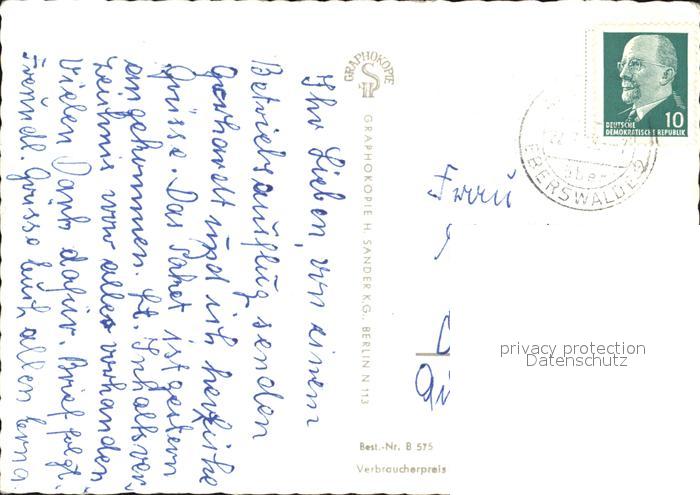 Ihr Lieben, von einem
Betriebsausflug senden
Gerhardt und ich herzliche
Grüsse. Das Paket ist gestern
angekommen. Lt. Inhaltsver
zeichnis war alles vorhanden,
Vielen Dank dafür. Brief folgt.
Freundl. Grüsse Euch allen Erna.
GRAPHOKOPIE
GRAPHOKOPIE H. SANDER K.G., BERLIN N 113
DEUTSCHE
DEMOKRATISCHE REPUBLIK
10
über
EBERSWALDE 2
Frau
privacy protection
Datenschutz
Best.-Nr. B 575
Verbraucherpreis